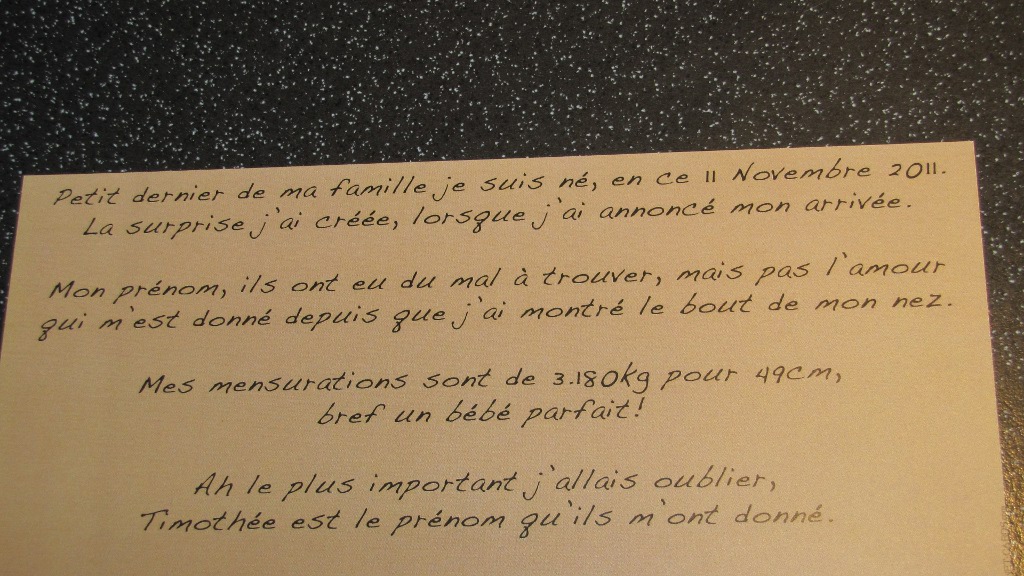 Petit dernier de ma famille je suis né, en ce 11 Novembre 2011.
La surprise j'ai créée, lorsque j'ai annoncé mon arrivée.
Mon prénom, ils ont eu du mal à trouver, mais pas l'amour
qui m'est donné depuis que j'ai montré le bout de mon nez.
Mes mensurations sont de 3.180kg pour 49cm,
bref un bébé parfait!
Ah le plus important j'allais oublier,
Timothée est le prénom qu'ils m'ont donné.